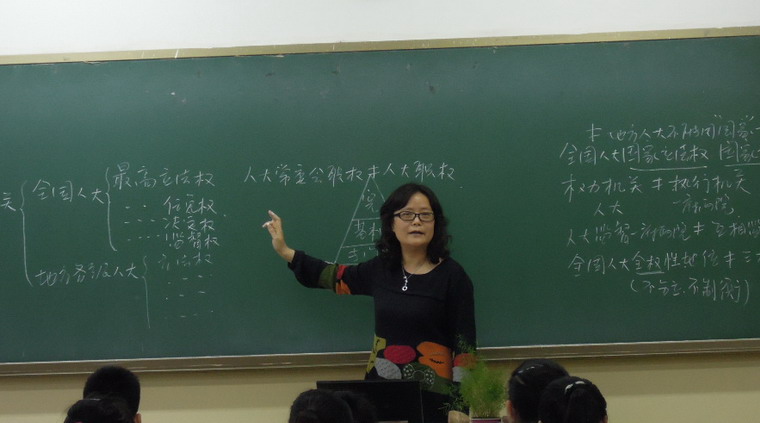 关
全国人大
最高立法权
‥ 任免权
‥ 决定权
‥ 监督权
地方各级人大
立法权
人大常委会职权≠人大职权
宪
基本
≠ 地方人大不能用"国家"
全国人大国家立法权 国家
权力机关≠执行机关
人大
人大监督
全国人大全权性地位≠三
(不分立.不制衡)